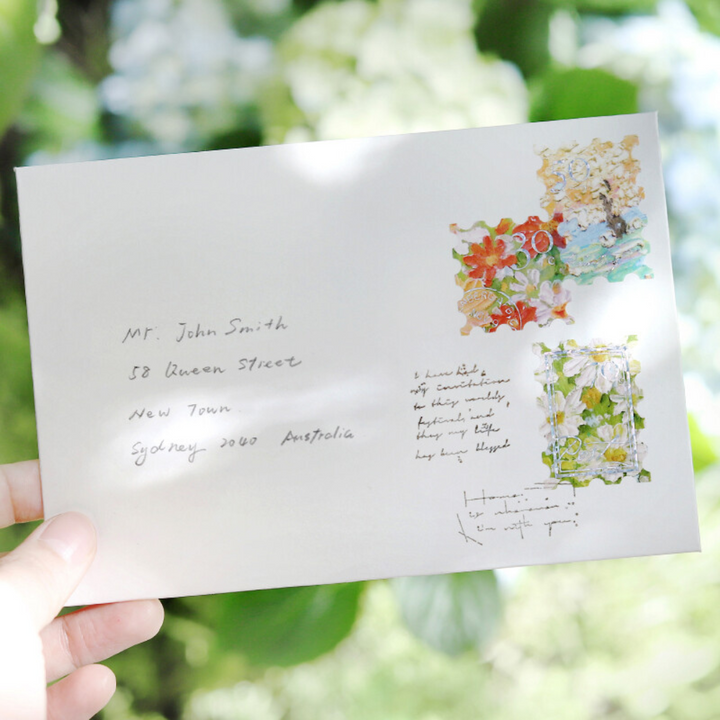 Mr. John Smith
58 Queen Street
New Town
Sydney 2040 Australia
30
30
I have had
my invitation
to this world's
festival, and
thus my life
has been blessed
Home
is wherever
I'm with you